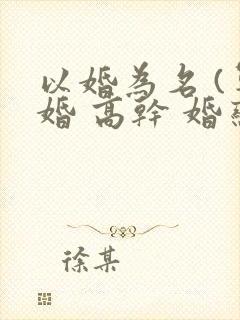 以婚為名(
婚 高幹 婚
徐某